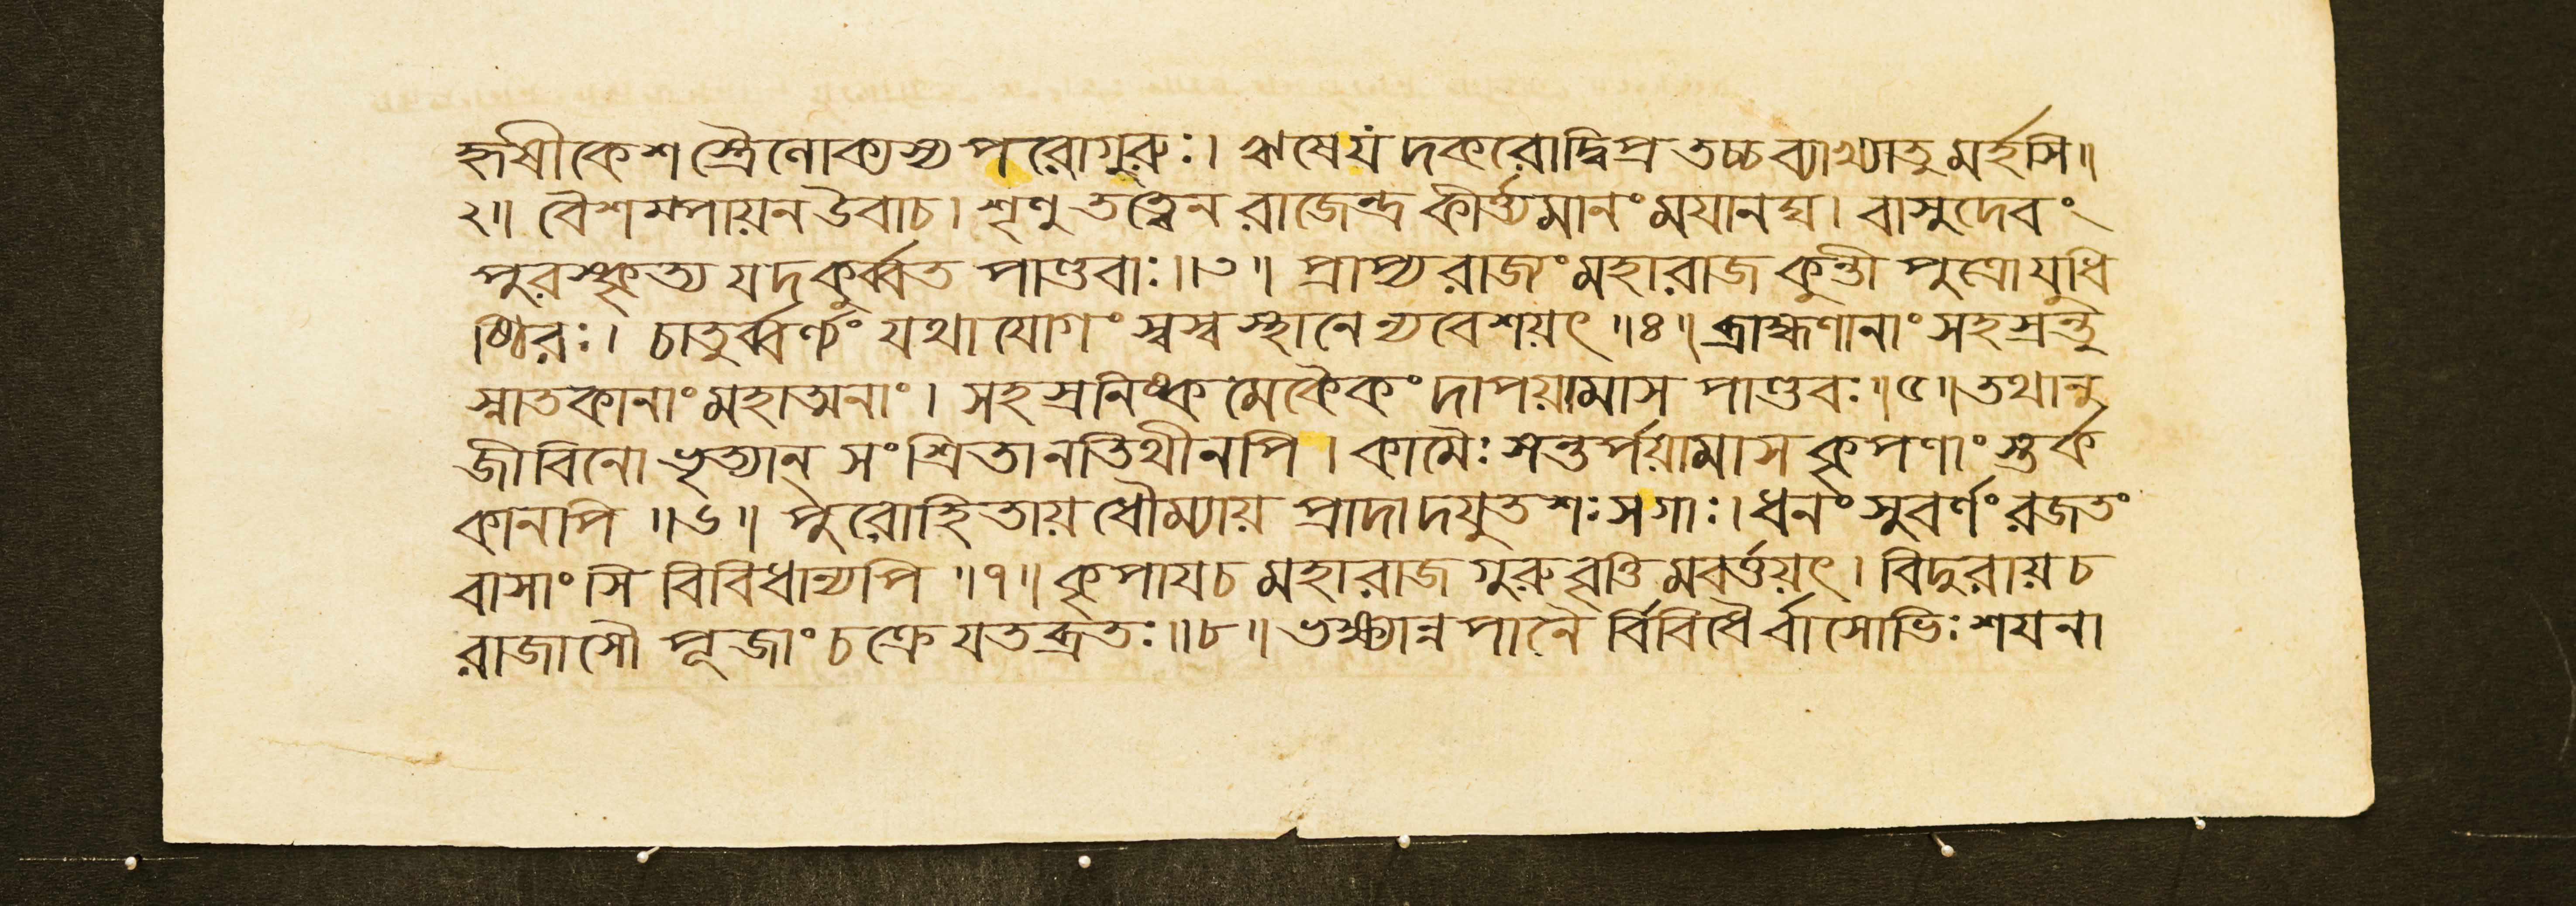 হৃষীকেশস্ত্রৈলোক্যস্য পরোগুরুঃ। ঋষেযদকরোদ্বিপ্র তচ্চব্যাখ্যাতুমর্হসি॥
২॥ বৈশম্পায়ন উবাচ। শৃণু তত্ত্বেন রাজেন্দ্র কীর্ত্ত্যমানং ময়ানঘ। বাসুদেবং
পুরস্কৃত্য যদকুর্ব্বত পাণ্ডবাঃ॥৩॥ প্রাপ্য রাজ্যং মহারাজ কুন্তীপুত্রো যুধি
ষ্ঠিরঃ। চাতুর্ব্বর্ণ্যং যথাযোগং স্বস্বস্থানে ন্যবেশয়ৎ॥৪॥ ব্রাহ্মণানাং সহস্রন্তু
স্নাতকানাং মহাত্মনাং। সহস্রনিষ্কমেকৈকং দাপয়ামাস পাণ্ডবঃ॥৫॥ তথানু
জীবিনো ভৃত্যান্ সংশ্রিতানতিথীনপি। কামৈঃ সন্তর্পয়ামাস কৃপণাংস্তর্ক
কানপি॥৬॥ পুরোহিতায় ধৌম্যায় প্রাদাদযুতশঃ সগাঃ। ধনং সুবর্ণং রজতং
বাসাংসি বিবিধান্যপি॥৭॥ কৃপায়চ মহারাজ গুরুবৃত্তিমবর্ত্তয়ৎ। বিদুরায় চ
রাজাসৌ পূজাং চক্রে যতব্রতঃ॥৮॥ ভক্ষ্যান্নপানৈর্বিবিধৈর্বাসোভিঃ শয়না